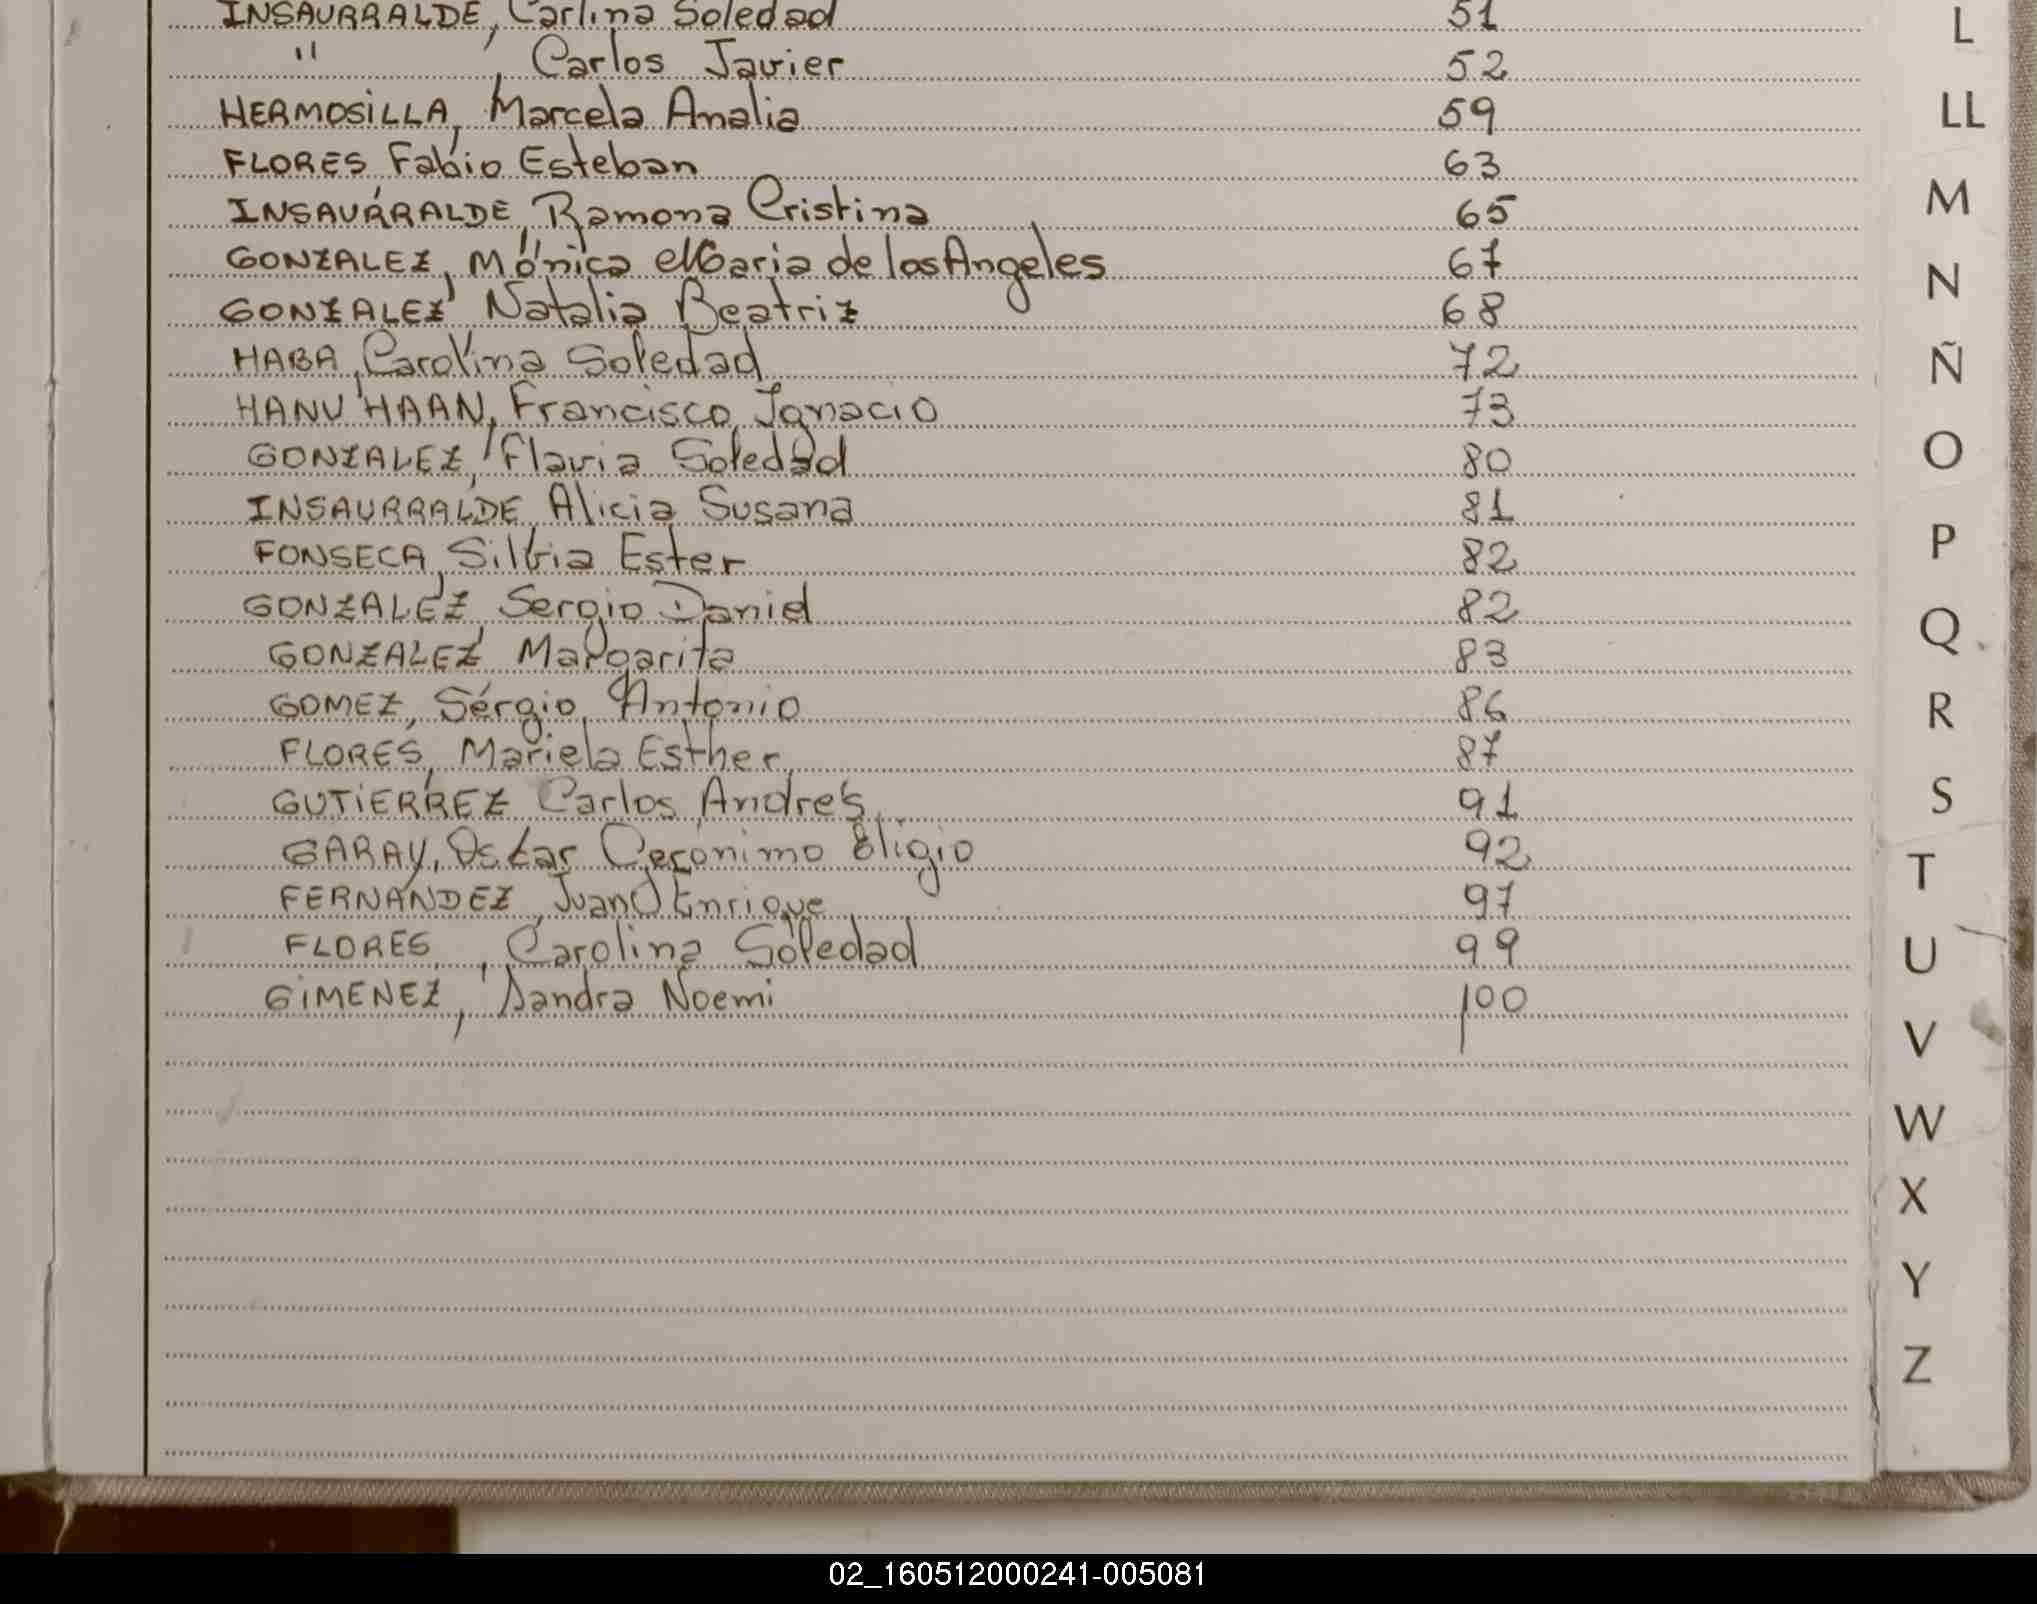 INSAURRALDE, Carlina Soledad 51
" , Carlos Javier 52
HERMOSiLLA, Marcela Analia 59
FLORES Fabio Esteban 63
INSAURRALDE, Ramona Cristina 65
GONZALEZ, Mónica Maria de los Angeles 67
GONZALEZ Natalia Beatriz 68
HABA, Carolina Soledad 72
HANU HAAN, Francisco Ignacio 73
GONZALEZ, Flavia Soledad 80
INSAURRALDE, Alicia Susana 81
FONSECA, Silvia Ester 82
GONZALEZ, Sergio Daniel 82
GONZALEZ Margarita 83
GOMEZ, Sergio Antonio 86
FLORES, Mariela Esther 87
GUTiERREZ Carlos Andrés 91
GARAY, Oscar Ceronimo Eligio 92
FERNANDEZ, Juan Enrique 97
FLORES, Carolina Soledad 99
GiMENEZ, Sandra Noemi 100
L
LL
M
N
Ñ
O
P
Q
R
S
T
U
V
W
X
Y
Z
02_160512000241-005081